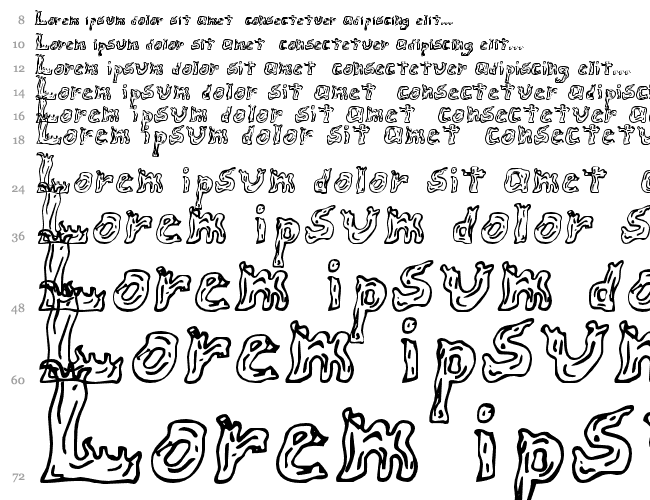 8 Lorem ipsum dolor sit amet consectetuer adipiscing elit...
10 Lorem ipsum dolor sit amet consectetuer adipiscing elit...
12 Lorem ipsum dolor sit amet consectetuer adipiscing elit....
14 Lorem ipsum dolor sit amet consectetuer adipisci
16 Lorem ipsum dolor sit amet consectetuer a
18 Lorem ipsum dolor sit amet consectetu
24 Lorem ipsum dolor sit amet c
36 Lorem ipsum dolor s
48 Lorem ipsum do
60 Lorem ipsum
72 Lorem ips